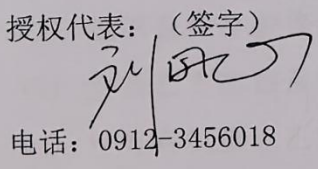 授权代表：（签字）
电话：0912-3456018